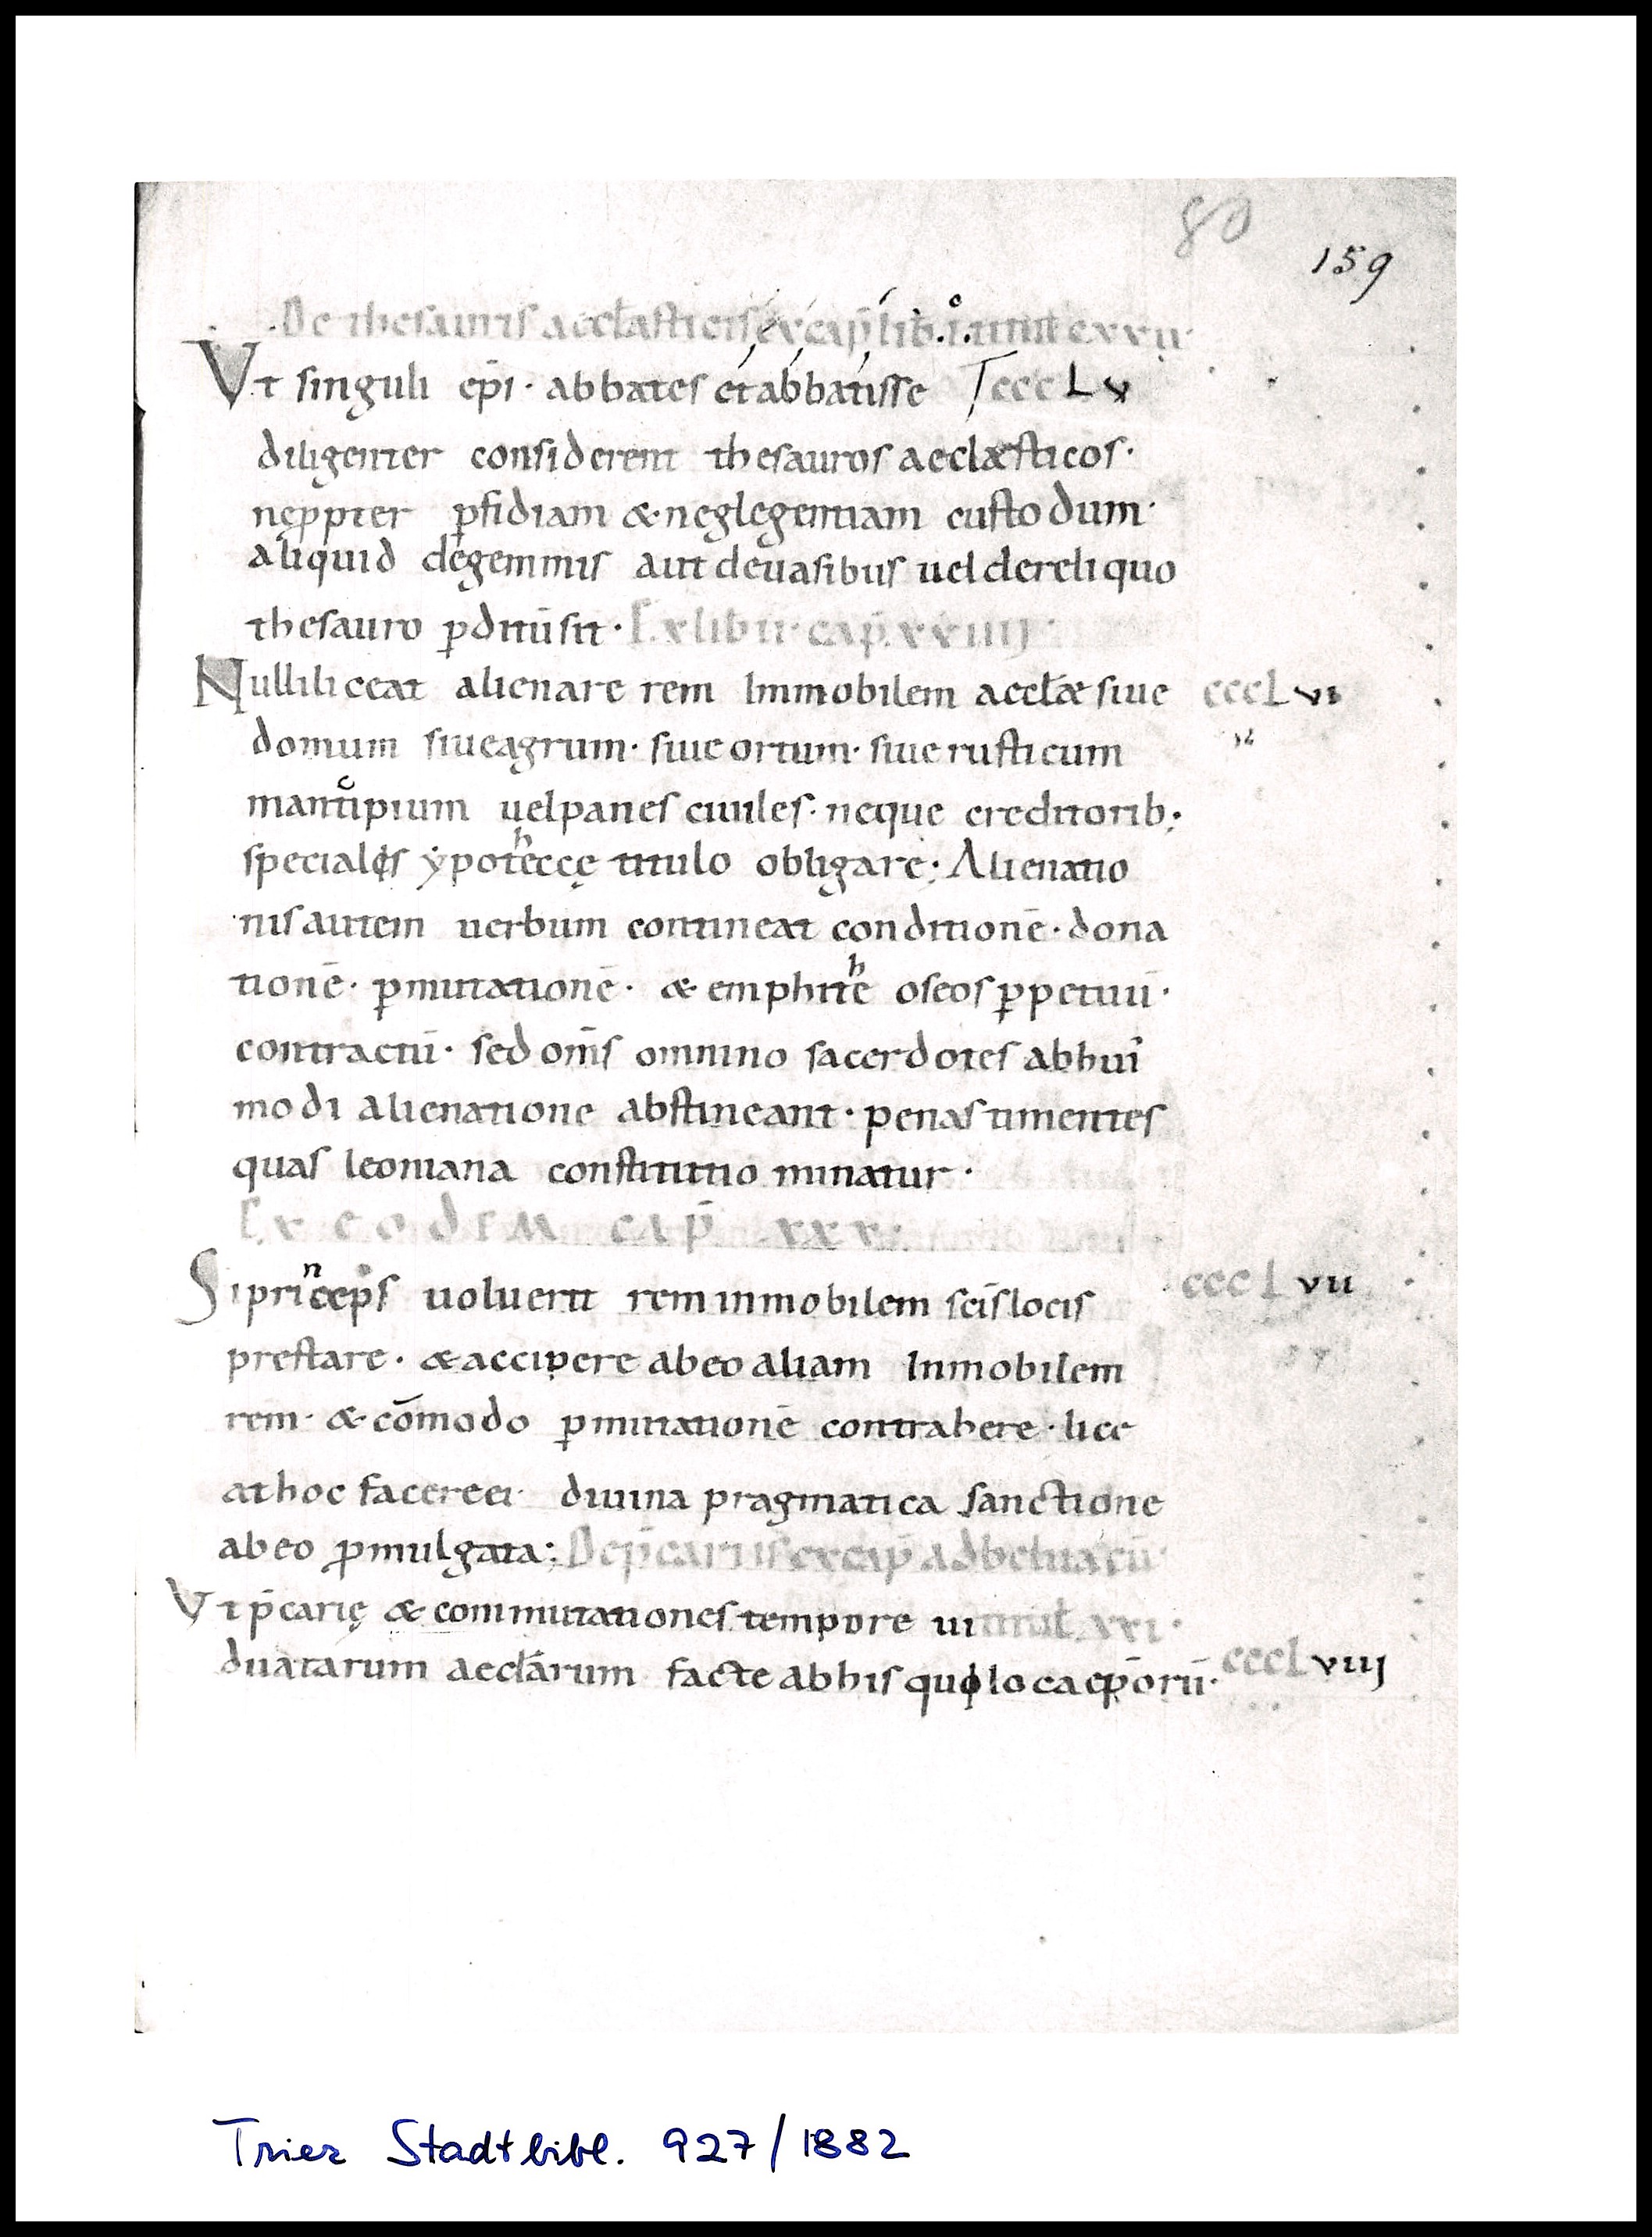 80
159
De thesauris aeccl̄asticis ex cap̄ lib. i. titul̄ cxxii
Vt singuli ep̄i· abbates et abbatisse cccLv
diligenter considerent thesauros aeclæsticos·
ne ꝓpter ꝑfidiam & neglegentiam custodum·
aliquid de gemmis aut de uasibus uel de reliquo
thesauro ꝑditū sit· Ex lib ii· cap̄ xxiiij
Nulli liceat alienare rem Immobilem aeccl̄æ siue cccLvi
domum siue agrum· siue ortum· siue rusticum
mancipium uel panes ciuiles· neque creditorib;
specialis ypothecę titulo obligare; Alienatio
nis autem uerbum contineat conditionē· dona
tionē· ꝑmutationē· & emphithe oseos ꝑpetuū·
contractū· sed om̄s omnino sacerdotes ab hui
modi alienatione abstineant· penas timentes
quas leoniana constitutio minatur·
Ex eodem cap̄ xxx·
Si princeps uoluerit rem inmobilem sc̄is locis cccLvii
prestare· & accipere ab eo aliam Inmobilem
rem· & cōmodo ꝑmutationē contrahere· lice
at hoc facere ei· diuina pragmatica sanctione
ab eo ꝓmulgata; De p̄cariis ex cap̄ ad
Vt p̄carię & commutationes tempore ui titul̄ xxi·
duatarum aeccl̄arum facte ab his qui loca ep̄orū· cccLviij
Trier Stadtbibl. 927/1882